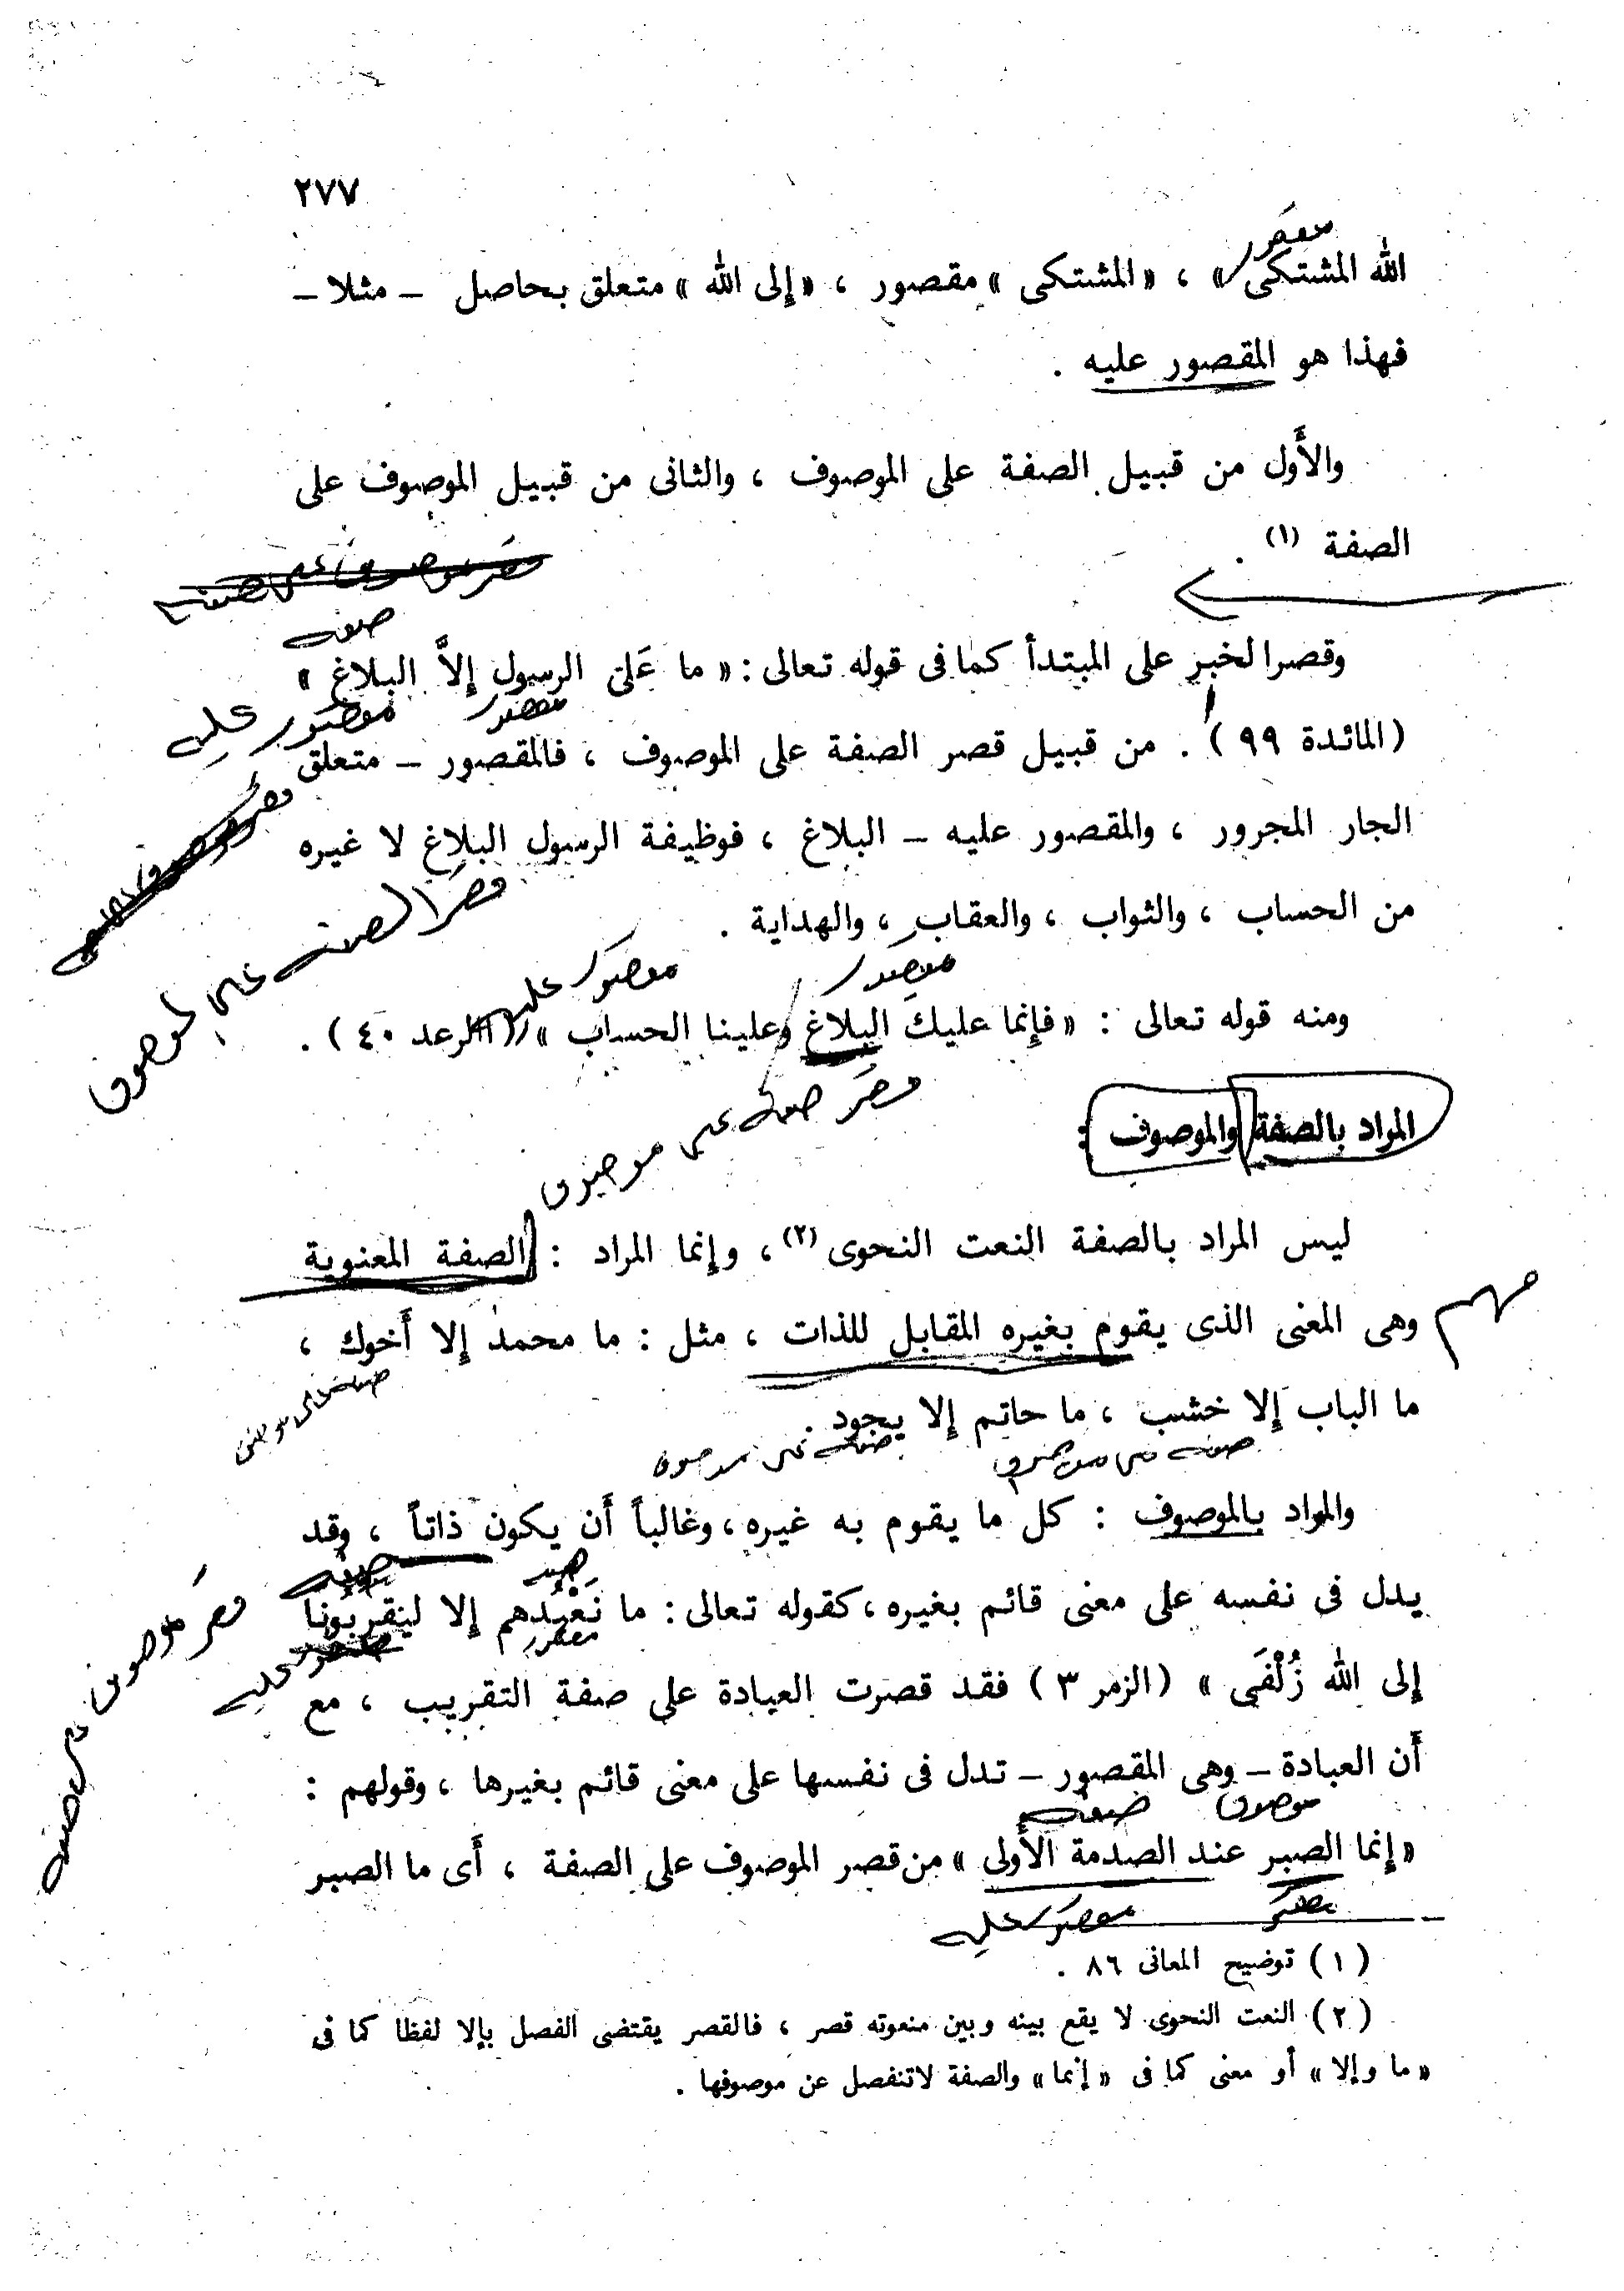 ٢٧٧
مقصور
الله المشتكى » ، « المشتكى » مقصور ، « إلى الله » متعلق بحاصل – مثلا –
فهذا هو المقصور عليه .
والأَول من قبيل الصفة على الموصوف ، والثانى من قبيل الموصوف على
الصفة (١) .
صفة
وقصر الخبر على المبتدأ كما فى قوله تعالى : « ما عَلىَ الرسول إِلاَّ البلاغ »
مقصور مقصور عليه
(المائدة ٩٩) . من قبيل قصر الصفة على الموصوف ، فالمقصور – متعلق
الجار المجرور ، والمقصور عليه – البلاغ ، فوظيفة الرسول البلاغ لا غيره
قصر الصفة على الموصوف
من الحساب ، والثواب ، والعقاب ، والهداية .
مقصور مقصور عليه
ومنه قوله تعالى : « فإِنما عليكَ البلاغ وعلينا الحساب » (الرعد ٤٠) .
قصر صفة على موصوف
المراد بالصفة والموصوف :
ليس المراد بالصفة النعت النحوى (٢) ، وإِنما المراد : الصفة المعنوية
مهم
وهى المعنى الذى يقوم بغيره المقابل للذات ، مثل : ما محمد إِلا أَخوك ،
ما الباب إِلا خشب ، ما حاتم إِلا يجود .
صفة على موصوف صفة على موصوف
والمراد بالموصوف : كل ما يقوم به غيره ، وغالباً أَن يكون ذاتاً ، وقد
يدل فى نفسه على معنى قائم بغيره ، كقوله تعالى : ما نَعْبُدهم إِلا لينقربُونا
مقصور
قصر موصوف على صفة
إِلى الله زُلْفَى » (الزمر ٣) فقد قصرت العبادة على صفة التقريب ، مع
أَن العبادة – وهى المقصور – تدل فى نفسها على معنى قائم بغيرها ، وقولهم :
موصوف صفة
« إِنما الصبر عند الصدمة الأُولى » من قصر الموصوف على الصفة ، أَى ما الصبر
مقصور عليه
(١) توضيح المعانى ٨٦ .
(٢) النعت النحوى لا يقع بينه وبين منعوته قصر ، فالقصر يقتضى الفصل بإلا لفظا كما فى
« ما وإلا » أو معنى كما فى « إنما » والصفة لا تنفصل عن موصوفها .